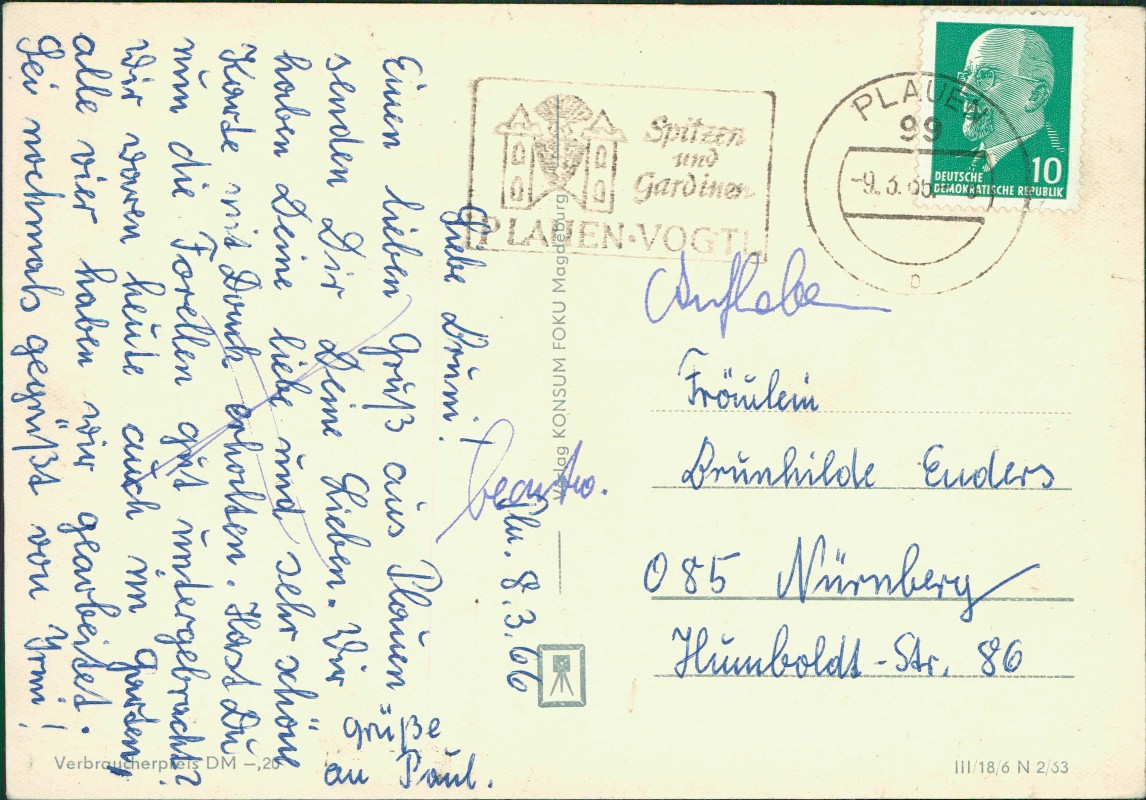 Plu. 8.3.66
Liebe Bruni!
Einen lieben Gruß aus Plauen
senden Dir Deine Lieben. Wir
haben Deine liebe und sehr schöne
Karte mit Dank erhalten. Hast Du
nun die Forellen gut untergebracht?
Wir waren heute auch im Garten,
alle vier haben wir gearbeitet.
Sei nochmals gegrüßt von Yrmi!
Grüße
an Paul.
beantw.
Aufheben
Spitzen
und
Gardinen
PLAUEN·VOGTL
PLAUEN
99
-9. 3. 66
DEUTSCHE
DEMOKRATISCHE REPUBLIK
10
Verlag KONSUM FOKU Magdeburg
Fräulein
Brunhilde Enders
085 Nürnberg
Humboldt-Str. 86
Verbraucherpreis DM –,20
III/18/6 N 2/63